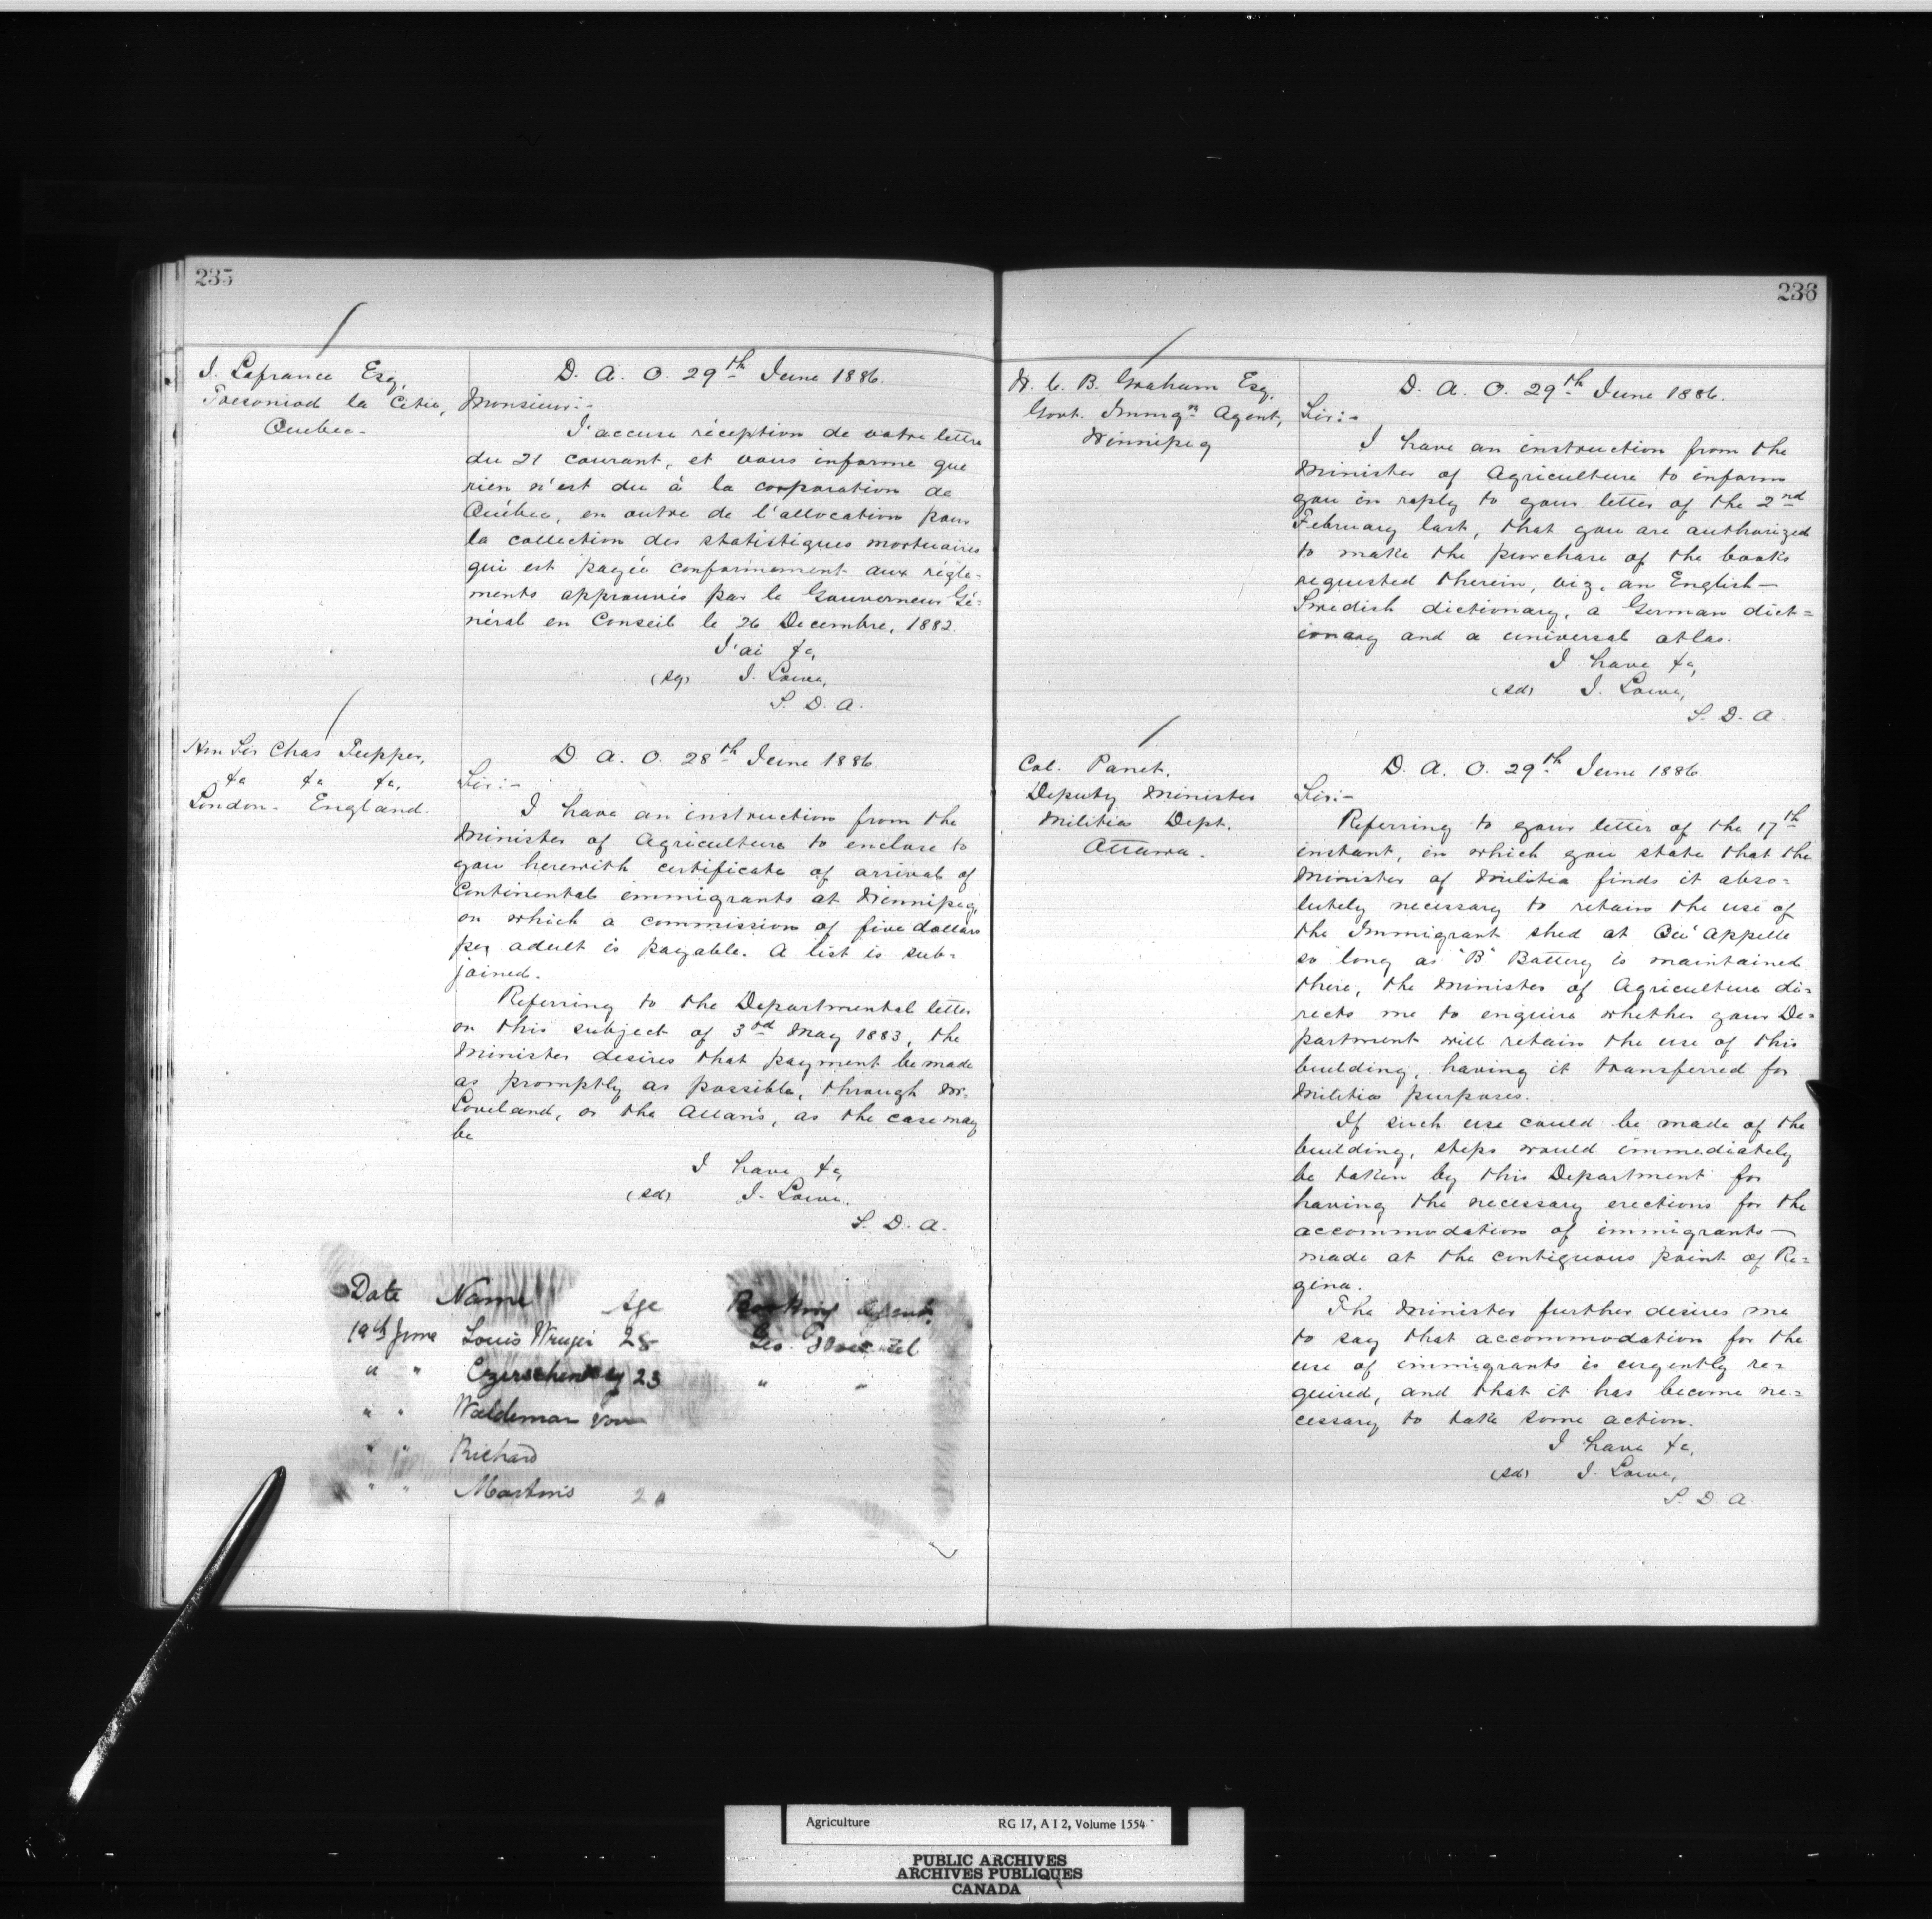 235
J. Lafrance Esq,
Tresoriod la Citie,
Quebec-
D. A. O. 29th June 1886.
Monsieur:-
J'accuse réception de votre lettre
du 21 courant, et vous informe que
rien n'est du à la corporation de
Québec, en outre de l'allocation pour
la collection des statistiques mortuaires
qui est payée conformement aux régle=
ments approuvés par le Gouverneur Gé=
néral en Conseil le 26 Decembre, 1882.
J'ai &c,
(sg) J. Lowe,
S. D. A.
Hon Sir Chas Tupper,
&c &c &c,
London- England.
D. A. O. 28th June 1886.
Sir:-
I have an instruction from the
Minister of Agriculture to enclose to
you herewith certificate of arrival of
Continental immigrants at Winnipeg,
on which a commission of five dollars
per adult is payable. A list is sub=
joined.
Referring to the Departmental letter
on this subject of 3rd May 1883, the
Minister desires that payment be made
as promptly as possible, through Mr.
Loveland, or the Allans, as the case may
be
I have &c,
(sd) J. Lowe.
S. D. A.
Date Name Age Booking Agent.
19th June Louis 28 Geo.
" " 23 " "
" " Waldemar von
" " Richard
" " Martins
236
W. C. B. Graham Esq,
Govt. Immgn Agent,
Winnipeg
D. A. O. 29th June 1886.
Sir:-
I have an instruction from the
Minister of Agriculture to inform
you in reply to your letter of the 2nd
February last, that you are authorized
to make the purchase of the books
requested therein, viz, an English-
Swedish dictionary, a German dict=
ionary and a universal atlas.
I have &c,
(sd) J. Lowe,
S. D. A.
Col. Panet,
Deputy Minister
Militia Dept.
Ottawa.
D. A. O. 29th June 1886.
Sir:-
Referring to your letter of the 17th
instant, in which you state that the
Minister of Militia finds it abso=
lutely necessary to retain the use of
the Immigrant shed at Qu'Appelle
so long as "B" Battery is maintained
there, the Minister of Agriculture di=
rects me to enquire whether your De=
partment will retain the use of this
building, having it transferred for
Militia purposes.
If such use could be made of the
building, steps would immediately
be taken by this Department for
having the necessary erections for the
accommodation of immigrants-
made at the contiguous point of Re=
gina.
The Minister further desires me
to say that accommodation for the
use of immigrants is urgently re=
quired, and that it has become ne=
cessary to take some action.
I have &c,
(sd) J. Lowe,
S. D. A.
Agriculture RG 17, A I 2, Volume 1554
PUBLIC ARCHIVES
ARCHIVES PUBLIQUES
CANADA